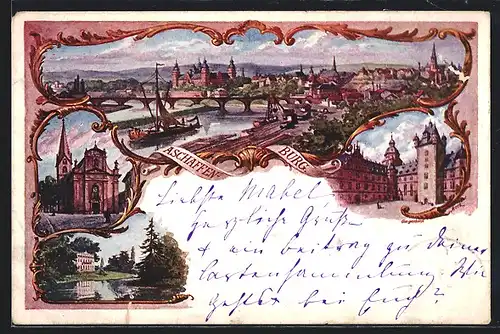 ASCHAFFEN BURG
Liebste Mabel,
herzliche Grüße
& ein Beitrag zu deiner
Kartensammlung. Wie
geht's bei Euch?